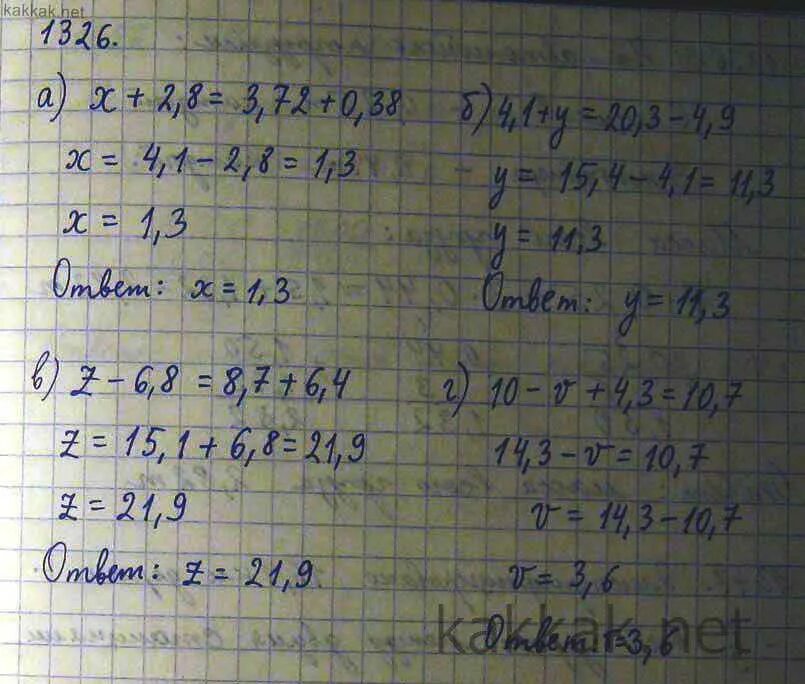 kakkak.net
1326.
а) x + 2,8 = 3,72 + 0,38
x = 4,1 - 2,8 = 1,3
x = 1,3
Ответ: x = 1,3
б) 4,1 + y = 20,3 - 4,9
y = 15,4 - 4,1 = 11,3
y = 11,3
Ответ: y = 11,3
в) z - 6,8 = 8,7 + 6,4
z = 15,1 + 6,8 = 21,9
z = 21,9
Ответ: z = 21,9
г) 10 - v + 4,3 = 10,7
14,3 - v = 10,7
v = 14,3 - 10,7
v = 3,6
Ответ 3,6
kakkak.net